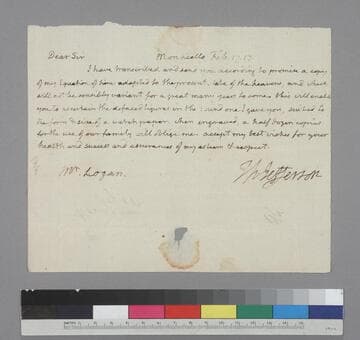 Dear Sir Monticello Feb. 17. 17
I have transcribed and send you according to promise a copy
of my Equation of time adapted to the present state of the heavens, and which
will not be sensibly variant for a great many years to come. this will enable
you to ascertain the defaced figures in the one I gave you, suited to
the form & size of a watch paper. when engraved, a half dozen copies
for the use of our family will oblige me. accept my best wishes for your
health and success and assurances of my esteem & respect.
Mr. Logan.
Th: Jefferson